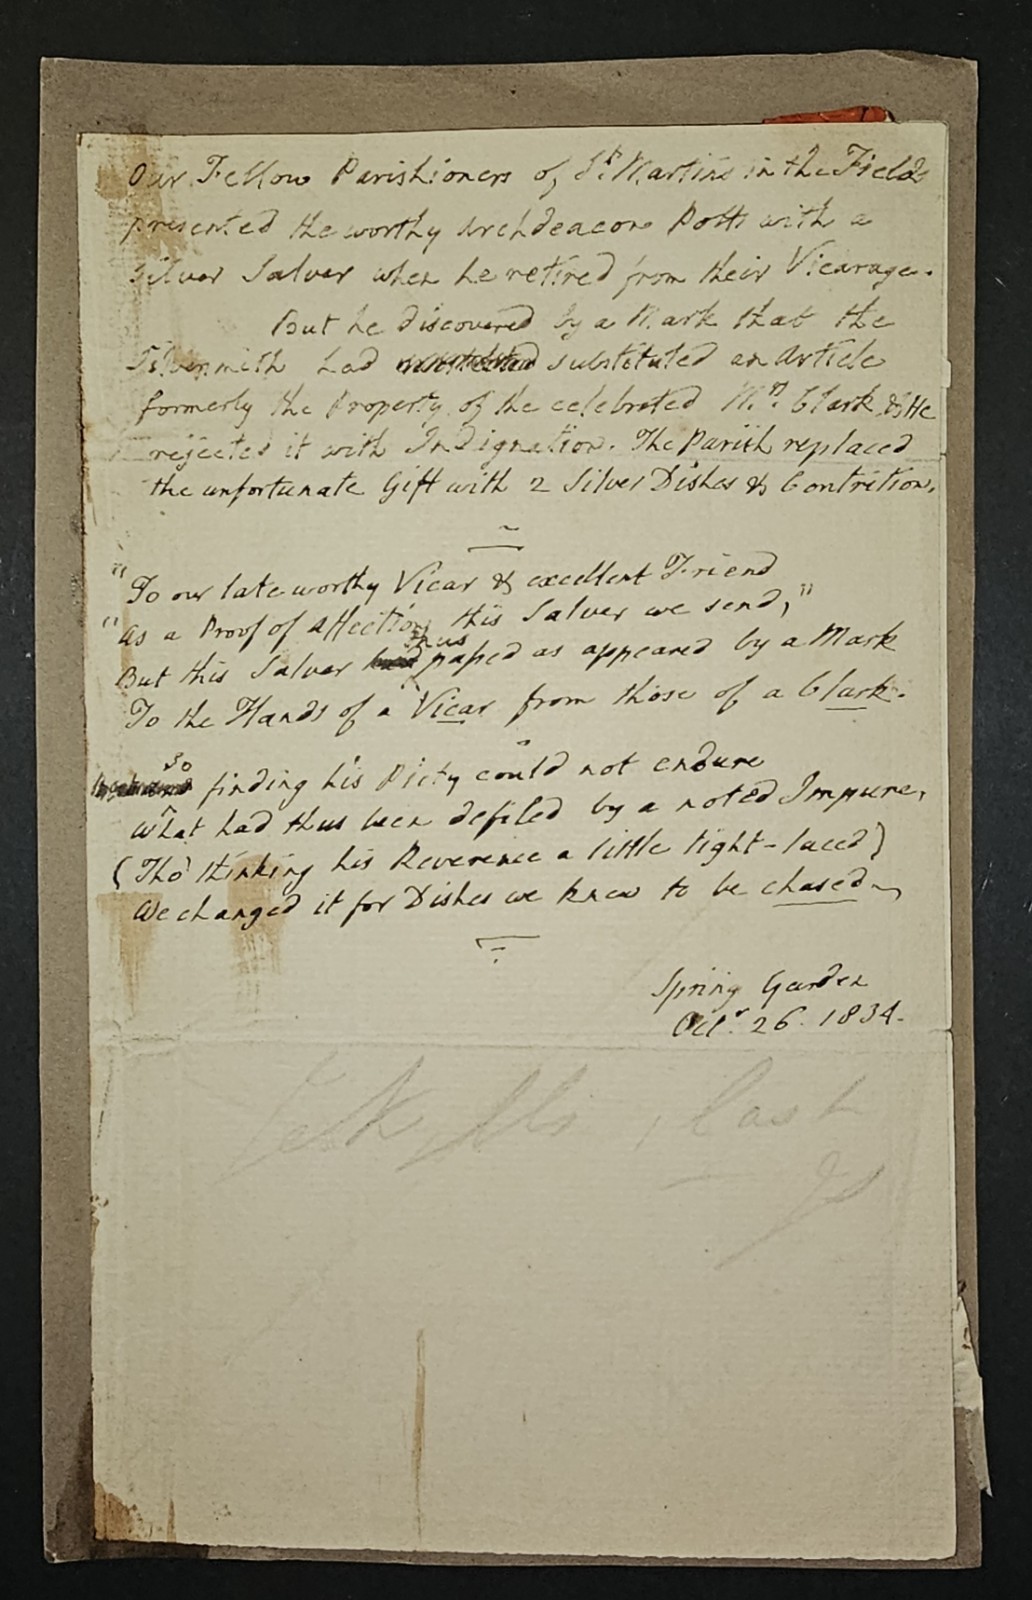 Our Fellow Parishioners of St. Martins in the Fields
presented the worthy Archdeacon Potts with a
Silver Salver when he retired from their Vicarage.
But he discovered by a Mark that the
Silversmith had substituted an Article
formerly the Property of the celebrated Mrs. Clark, & He
rejected it with Indignation. The Parish replaced
the unfortunate Gift with 2 Silver Dishes & Contrition.
"To our late worthy Vicar & excellent Friend
"As a Proof of Affection, this Salver we send,"
But this Salver thus passed as appeared by a Mark
To the Hands of a Vicar from those of a Clark.
So finding his Piety could not endure
What had thus been defiled by a noted Impure,
(Tho' thinking his Reverence a little tight-laced)
We changed it for Dishes we knew to be chased
Spring Garden
Octr. 26. 1834.